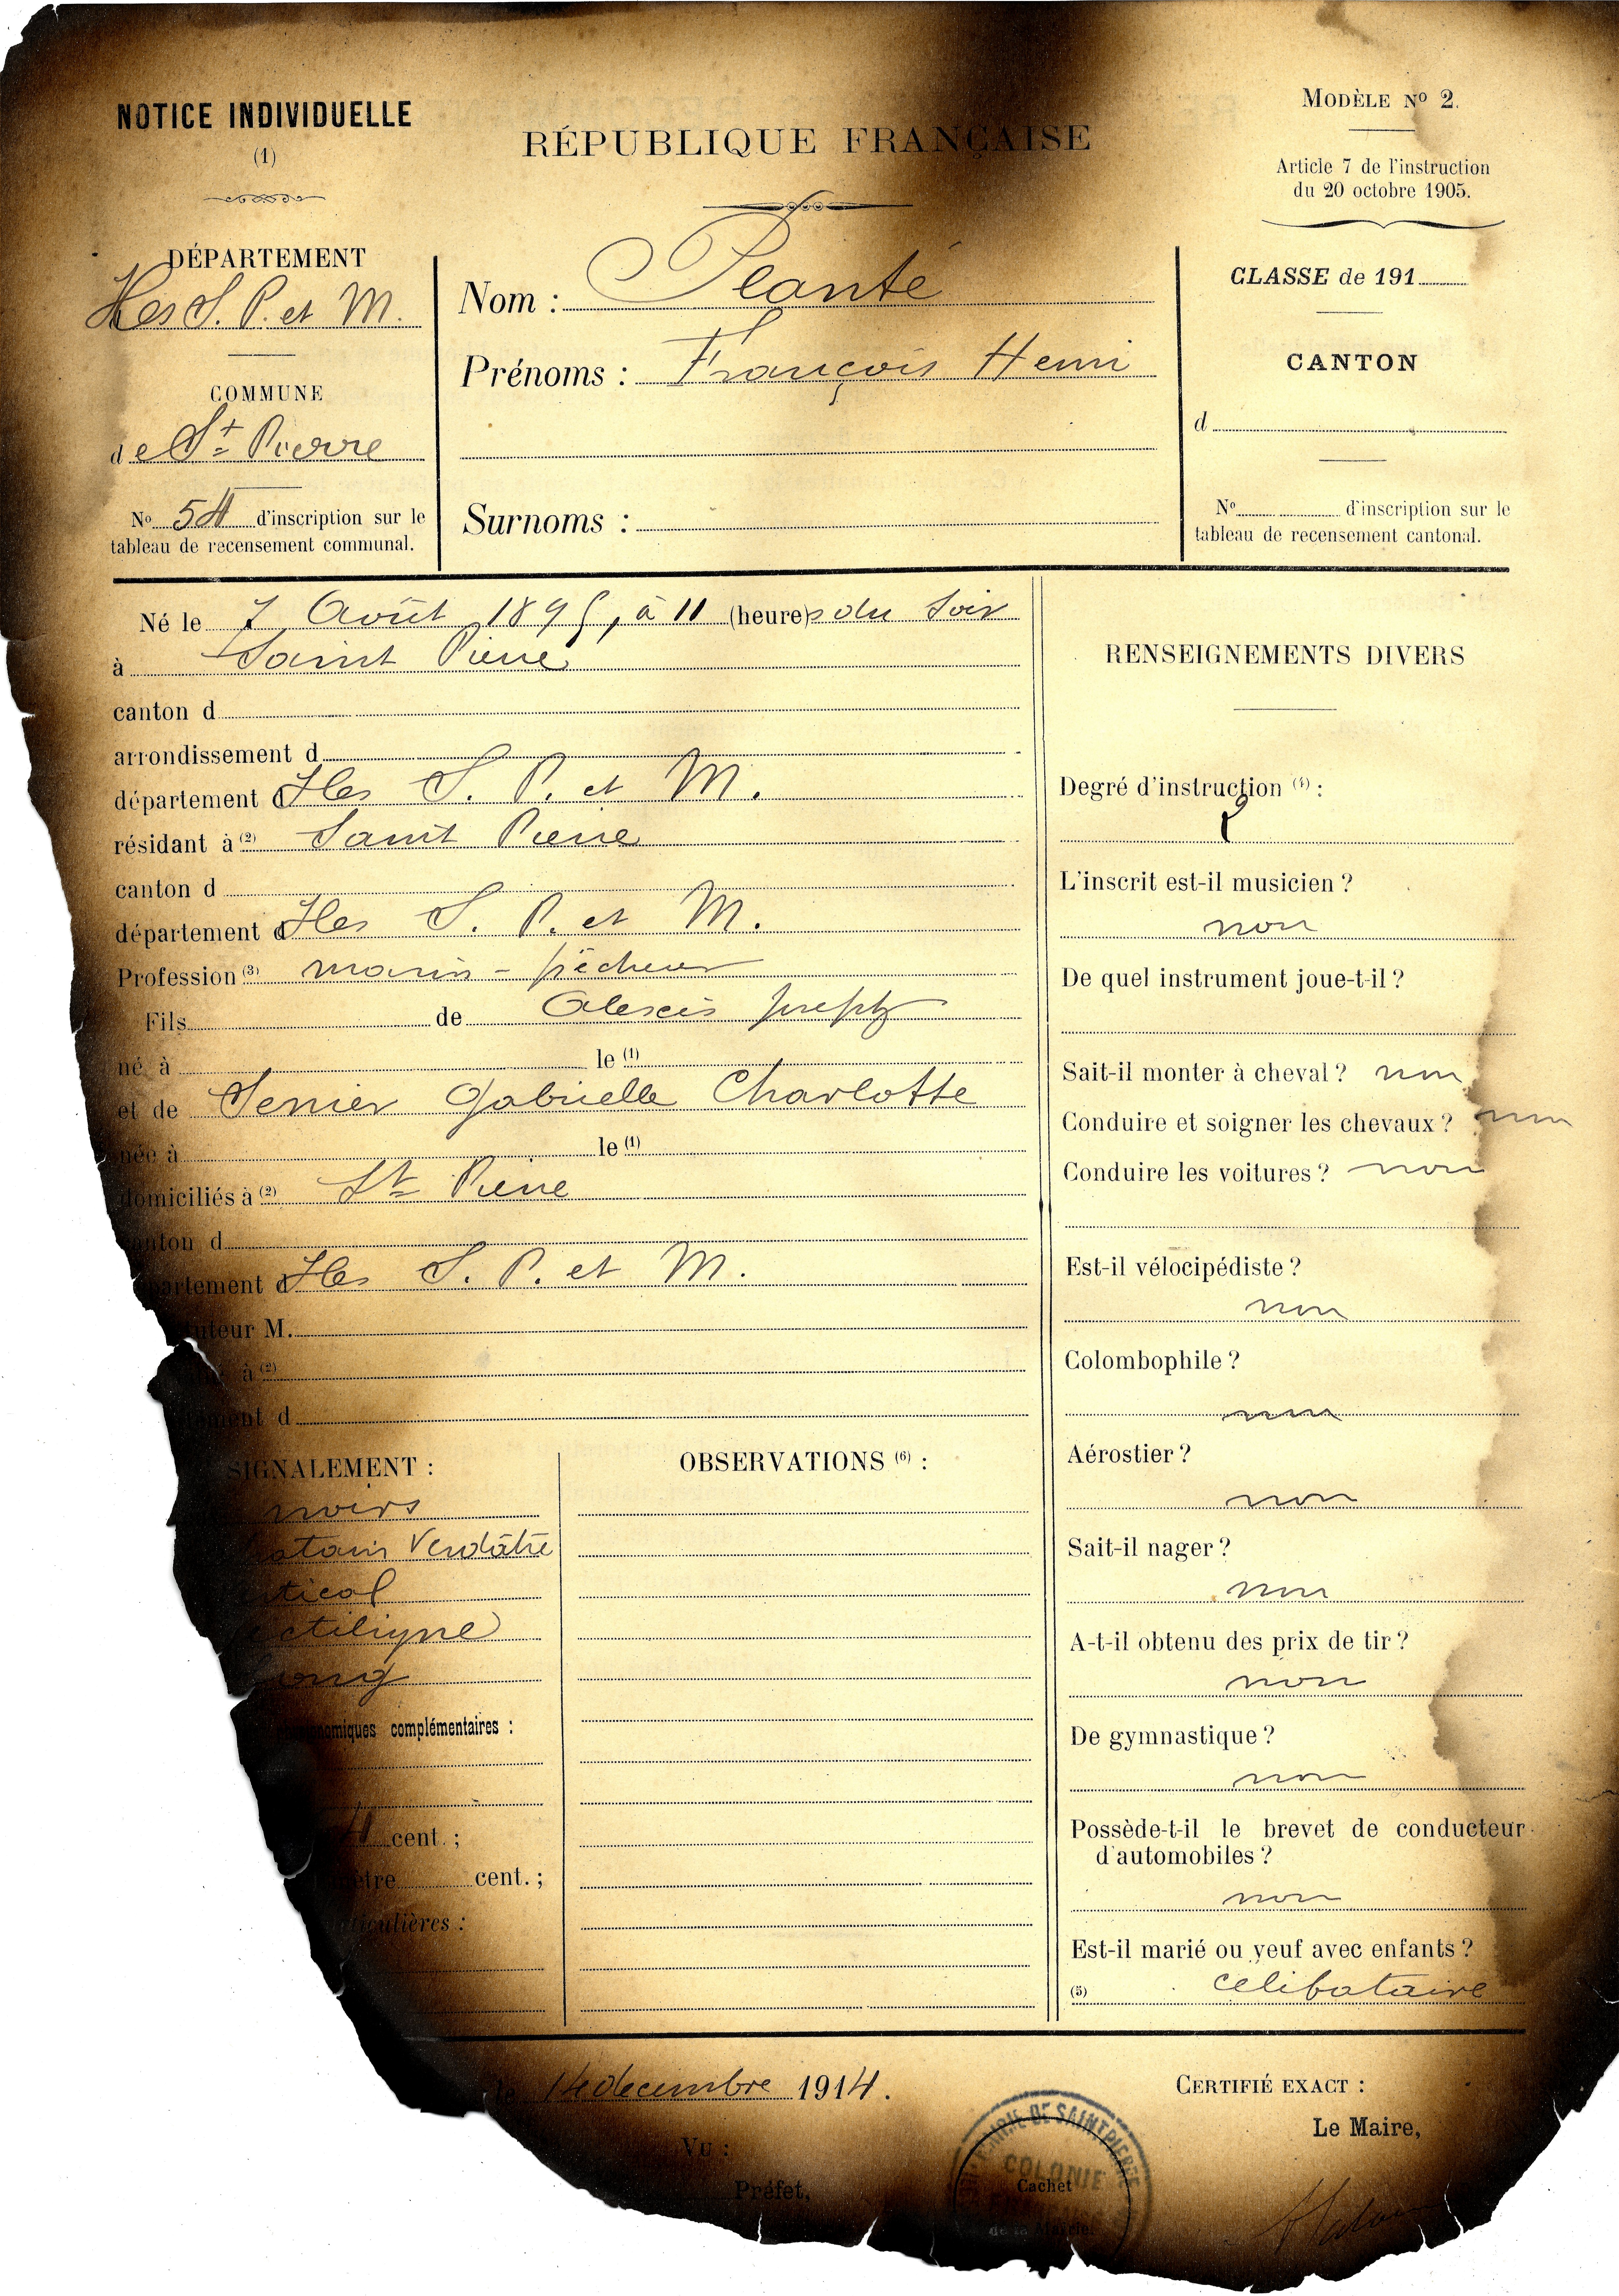 NOTICE INDIVIDUELLE
(1)
RÉPUBLIQUE FRANÇAISE
MODÈLE No 2.
Article 7 de l'instruction
du 20 octobre 1905.
DÉPARTEMENT
Iles S. P. et M.
COMMUNE
de St Pierre
No 54 d'inscription sur le
tableau de recensement communal.
Nom : Planté
Prénoms : François Henri
Surnoms :
CLASSE de 191
CANTON
d
No d'inscription sur le
tableau de recensement cantonal.
Né le 7 Août 1895, à 11 (heures du soir
à Saint Pierre
canton d
arrondissement d
département d Iles S. P. et M.
résidant à (2) Saint Pierre
canton d
département d Iles S. P. et M.
Profession (3) marin-pêcheur
Fils de Alexis Joseph
né à le (1)
et de Gabrielle Charlotte
née à le (1)
domiciliés à (2) St Pierre
canton d
département d Iles S. P. et M.
tuteur M.
à (2)
d
SIGNALEMENT :
noirs
Verdâtre
complémentaires :
cent. ;
cent. ;
OBSERVATIONS (6) :
RENSEIGNEMENTS DIVERS
Degré d'instruction (4) :
L'inscrit est-il musicien ?
non
De quel instrument joue-t-il ?
Sait-il monter à cheval ? non
Conduire et soigner les chevaux ? non
Conduire les voitures ? non
Est-il vélocipédiste ?
non
Colombophile ?
non
Aérostier ?
non
Sait-il nager ?
non
A-t-il obtenu des prix de tir ?
non
De gymnastique ?
non
Possède-t-il le brevet de conducteur
d'automobiles ?
non
Est-il marié ou veuf avec enfants ?
(5) celibataire
le 14 decembre 1914.
VU :
Préfet,
MAIRIE DE SAINT PIERRE
COLONIE
Cachet
de la Mairie
CERTIFIÉ EXACT :
Le Maire,